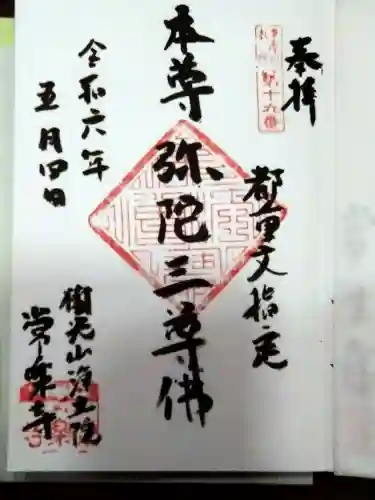 奉拝
都重文指定
本尊 弥陀三尊佛
令和六年
五月四日
樹光山浄土院
常楽寺